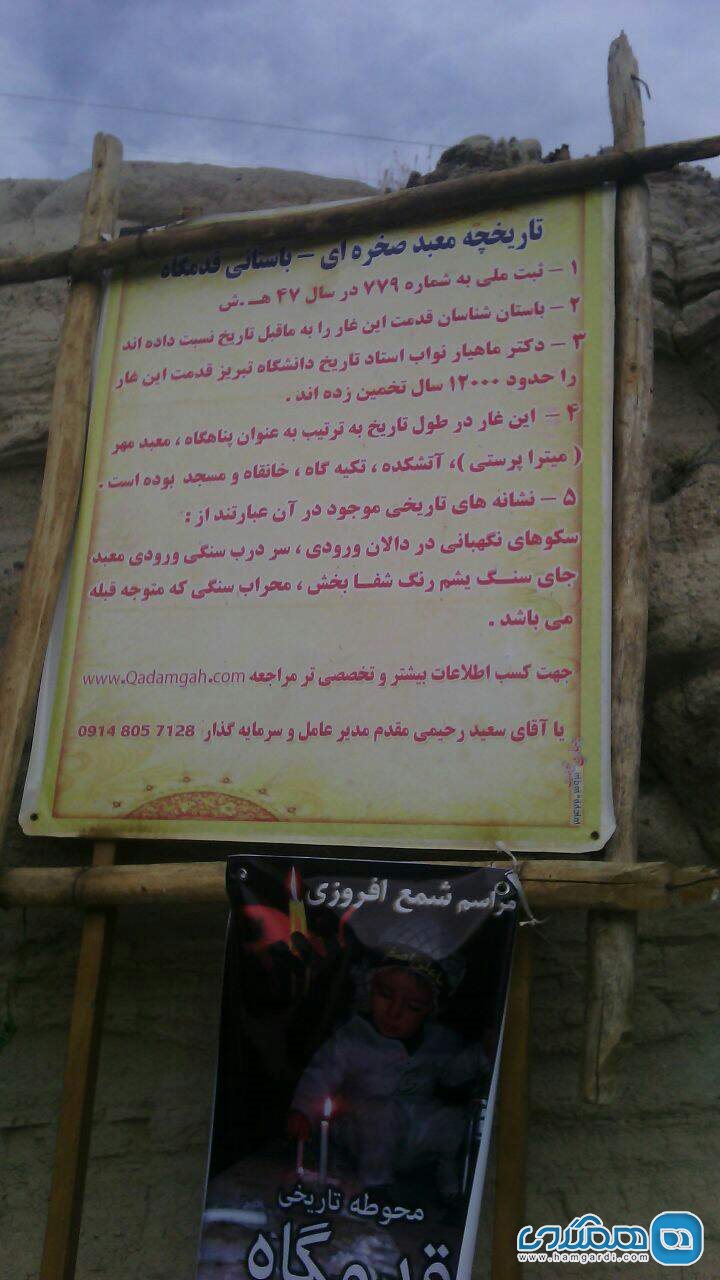 تاریخچه معبد صخره ای - باستانی قدمگاه
۱ - ثبت ملی به شماره ۷۷۹ در سال ۴۷ هـ .ش
۲ - باستان شناسان قدمت این غار را به ماقبل تاریخ نسبت داده اند
۳ - دکتر ماهیار نواب استاد تاریخ دانشگاه تبریز قدمت این غار
را حدود ۱۲۰۰۰ سال تخمین زده اند .
۴ - این غار در طول تاریخ به ترتیب به عنوان پناهگاه ، معبد مهر
( میترا پرستی )، آتشکده ، تکیه گاه ، خانقاه و مسجد بوده است .
۵ - نشانه های تاریخی موجود در آن عبارتند از :
سکوهای نگهبانی در دالان ورودی ، سر درب سنگی ورودی معبد
جای سنگ یشم رنگ شفا بخش ، محراب سنگی که متوجه قبله
می باشد .
جهت کسب اطلاعات بیشتر و تخصصی تر مراجعه www.Qadamgah.com
یا آقای سعید رحیمی مقدم مدیر عامل و سرمایه گذار 0914 805 7128
مراسم شمع افروزی
محوطه تاریخی
قدمگاه
همگردی
www.hamgardi.com